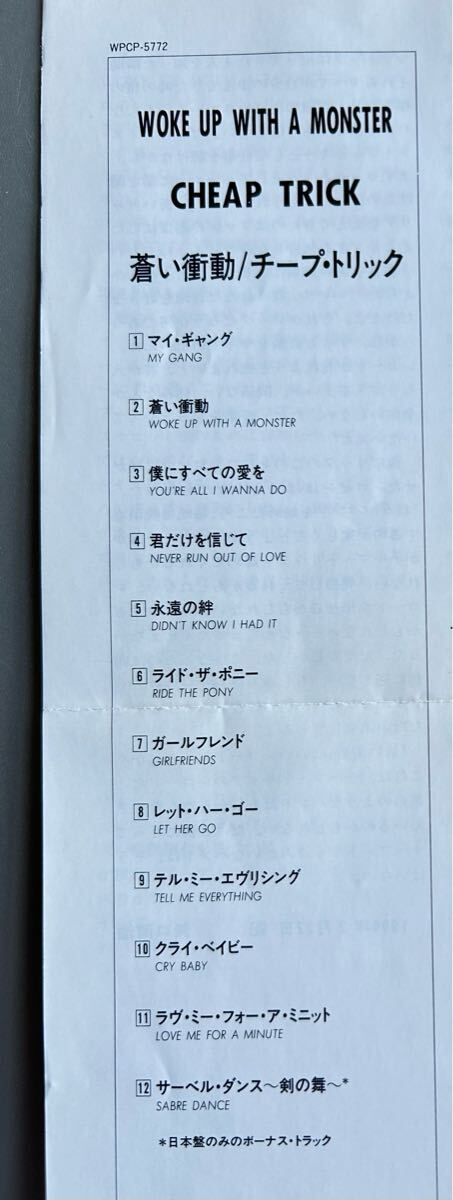 WPCP-5772
WOKE UP WITH A MONSTER
CHEAP TRICK
蒼い衝動/チープ・トリック
1 マイ・ギャング
MY GANG
2 蒼い衝動
WOKE UP WITH A MONSTER
3 僕にすべての愛を
YOU'RE ALL I WANNA DO
4 君だけを信じて
NEVER RUN OUT OF LOVE
5 永遠の絆
DIDN'T KNOW I HAD IT
6 ライド・ザ・ポニー
RIDE THE PONY
7 ガールフレンド
GIRLFRIENDS
8 レット・ハー・ゴー
LET HER GO
9 テル・ミー・エヴリシング
TELL ME EVERYTHING
10 クライ・ベイビー
CRY BABY
11 ラヴ・ミー・フォー・ア・ミニット
LOVE ME FOR A MINUTE
12 サーベル・ダンス〜剣の舞〜*
SABRE DANCE
*日本盤のみのボーナス・トラック